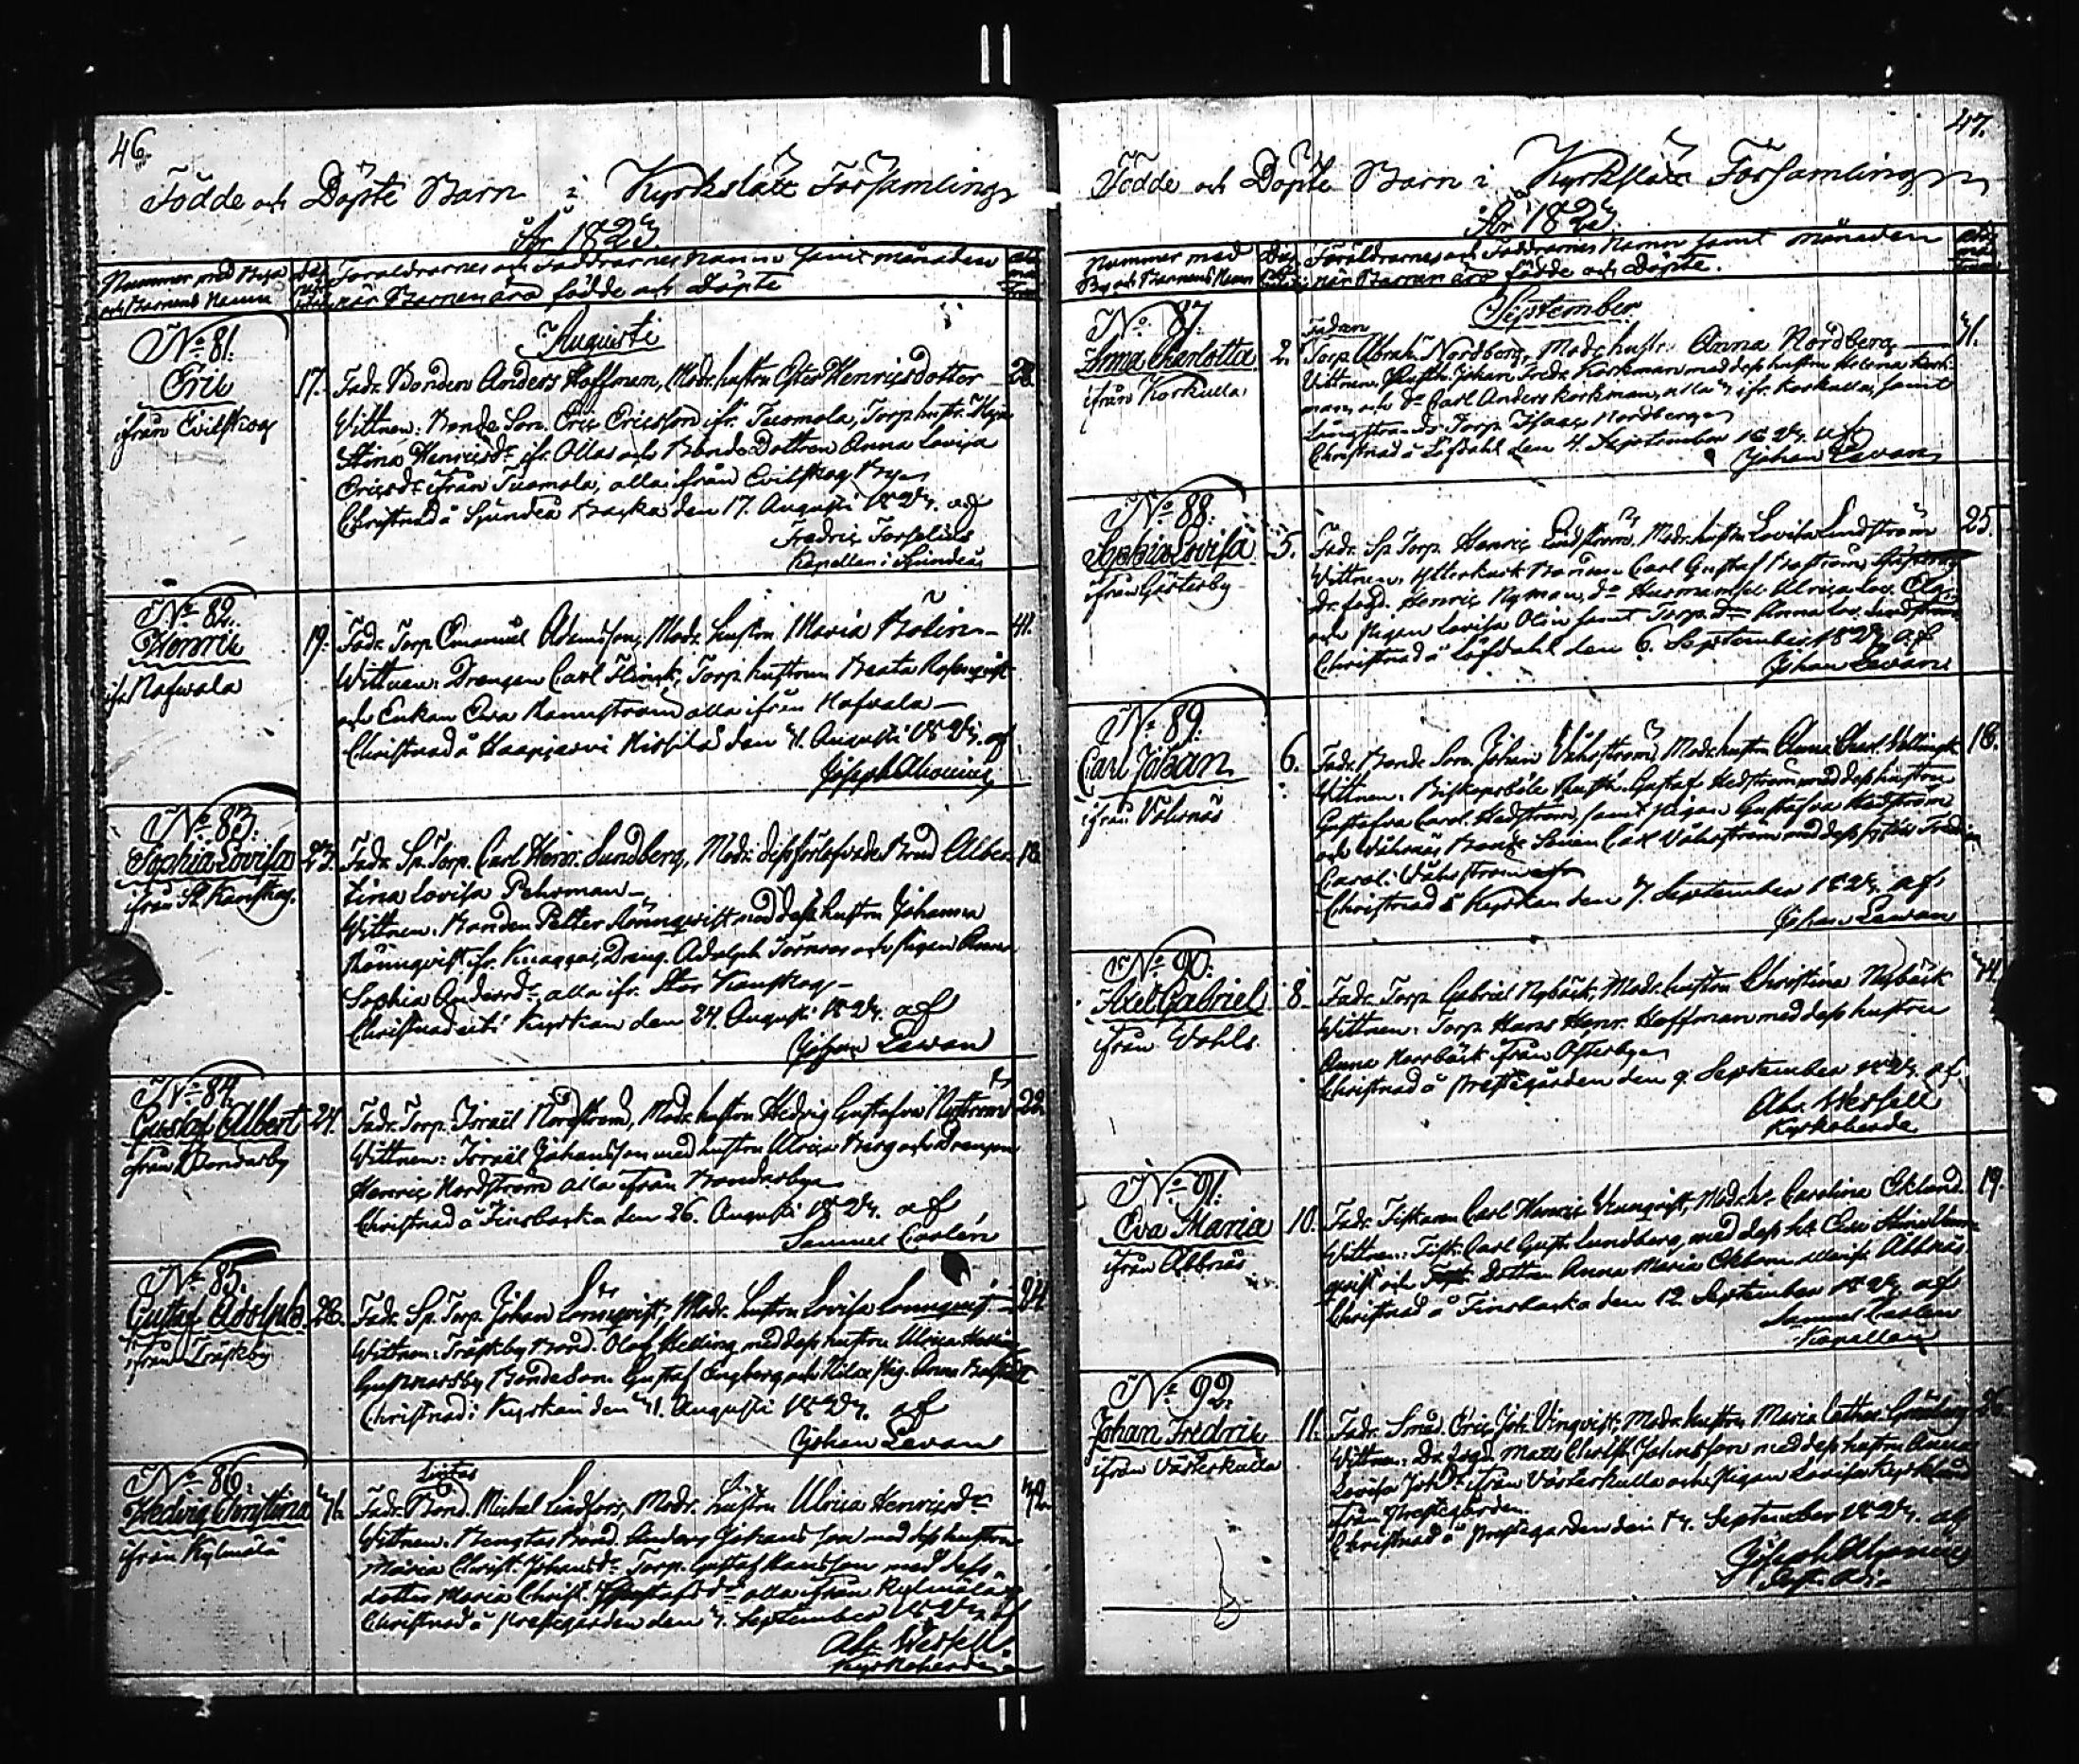 46.
Födde och Döpte Barn i Kyrkslätt Församling
År 1823.
Nummer med Byn
och Barnens Namn
Föräldrarnes och Faddrarnes Namn samt månaden
när Barnen äro födde och Döpte
Augusti
No 81.
Eric
ifrån Evitskog
17. Fadr. Bonden Anders Hoffman, Modr. hustru Ester Henricsdotter 28.
Wittnen: Bonde Son. Eric Ericsson ifr. Tuomola, Torp. hustr.
Stina Henricsdr ifr. Ollas och Bonde Dottren Anna Lovisa
Ericsdr ifrån Tuomola, alla ifrån Evitskog By
Christnad å Sjundeå Backa den 17. Augusti 1823. af
Fredric Forselius
Kapellan i Sjundeå
No 82.
Henric
ifr. Hafvala
19. Fadr. Torp. Emanuel Adamsson, Modr. hustru Maria Bolin 41.
Wittnen: Drengen Carl Flinck, Torp. hustrun Beata Rosenqvist
och Enkan Eva Rannström alla ifrån Hafvala
Christnad å Haapjärvi den 31. Augusti 1823. af
Joseph Alcenius
No 83.
Sophia Lovisa
ifrån St. Kanskog.
23. Fadr. Sp. Torp. Carl Henr. Sundberg, Modr. dess förlofvade Brud Alber- 18.
tina Lovisa Pehrman
Wittnen: Bonden Petter Rönnqvist med dess hustru Johanna
Rönnqvist ifr. Knapgas, Dreng. Adolph Törnroos och Pigan Anna
Sophia Andersdr, alla ifr. Stor Kanskog
Christnad uti Kyrkan den 24. Augusti 1823. af
Johan Levan
No 84.
Gustaf Albert
ifrån Bondarby
24. Fadr. Torp. Israël Nordström, Modr. hustru Hedvig Gustafva Nyström 22.
Wittnen: Israël Johansson med hustru Ulrica Berg och Drengen
Henric Nordström alla ifrån Bondarby
Christnad å Finsbacka den 26. Augusti 1823. af
Samuel Carlén
No 85.
Gustaf Adolph
ifrån Träskby
26. Fadr. Sp. Torp. Johan Lönnqvist, Modr. hustru Lovisa Lönnqvist 24.
Wittnen: Träskby Bond. Olof Helling med dess hustru Ulrica Helling
Gunnarsby Bonde Son. Gustaf Engberg och Pig. Anna
Christnad i Kyrkan den 31. Augusti 1823. af
Johan Levan
No 86.
Hedvig Christina
ifrån Kylmälä
31. Fadr. Lintas Bond. Michel Lindfors, Modr. hustru Ulrica Henricsdr 32.
Wittnen: Bengtas Bond. Anders Johansson med dess hustru
Maria Christ. Johansdr Torp. Gustaf Hansson med dess
dotter Maria Christ. Gustafsdr alla ifrån Kylmälä
Christnad å Prestegården den 3. September 1823 af
Abr. Wessell
Kyrkoherde
47.
Födde och Döpte Barn i Kyrkslätt Församling
År 1823.
Nummer med
By och Barnens Namn
Föräldrarnes och Faddrarnes Namn samt månaden
när Barnen äro födde och Döpte.
September
No 87.
Anna Charlotta
ifrån Korkulla
2. Fadren Torp. Abrah. Nordberg, Modr. hustr. Anna Nordberg 31.
Wittnen: Rusth. Johan Fredr. Korkman med dess hustru Helena Kork-
man, och Do Carl Anders Korkman, alla ifr. Korkulla, samt
Långstrands Torp. Isaac Nordberg
Christnad å Löfdahl den 4. September 1823. af
Johan Levan
No 88.
Sophia Lovisa
ifrån Gästerby
5. Fadr. Sp. Torp. Henric Lindström, Modr. hustru Lovisa Lindström 25.
Wittnen: Ytterkurk Bonden Carl Gustaf
Dr. fogd. Henric Nyman, Do Husmans
och Pigan Lovisa Olin samt Torp. Dr Anna Lov. Lindström
Christnad å Löfdahl den 6. September 1823 af
Johan Levan
No 89.
Carl Johan
ifrån Vohrnäs
6. Fadr. Bonde Son. Johan Wåhrström, Modr. hustru Anna Charl. 18.
Wittnen: Biskopsböle Rusth. Gustaf Hedström med dess hustru
Gustafva Carol. Hedström, samt Pigan Gustafva Hedström
och Bonde Sonen Carl Wåhrström med dess syster
Carol. Wåhrström
Christnad i Kyrkan den 7. September 1823. af
Johan Levan
No 90.
Axel Gabriel
ifrån Wohls
8. Fadr. Torp. Gabriel Nybäck, Modr. hustru Christina Nybäck 34.
Wittnen: Torp. Hans Henr. Hoffman med dess hustru
Anna Norrbäck ifrån Österby
Christnad å Prestegården den 9. September 1823. af
Abr. Wessell
Kyrkoherde
No 91.
Eva Maria
ifrån Åbbnäs
10. Fadr. Fiskaren Carl Henric Wennqvist, Modr. h. Carolina Eklund 19.
Wittnen: Fisk. Carl Gust. Lundberg, med dess h. Eva Stina Wenn-
qvist och dottren Anna Maria Ekbom alla ifr. Åbbnäs
Christnad å Finsbacka den 12. September 1823. af
Samuel Carlén
Kapellan
No 92.
Johan Fredric
ifrån Västerkulla
11. Fadr. Smed. Eric Joh. Vinqvist, Modr. hustru Maria Cathar. 26.
Wittnen: Dr. fogd. Matts Johansson med dess hustru Anna
Lovisa Johdr ifrån Västerkulla och Pigan Lovisa
från Prestegården
Christnad å Prestegården den 14. September 1823. af
Joseph Alcenius